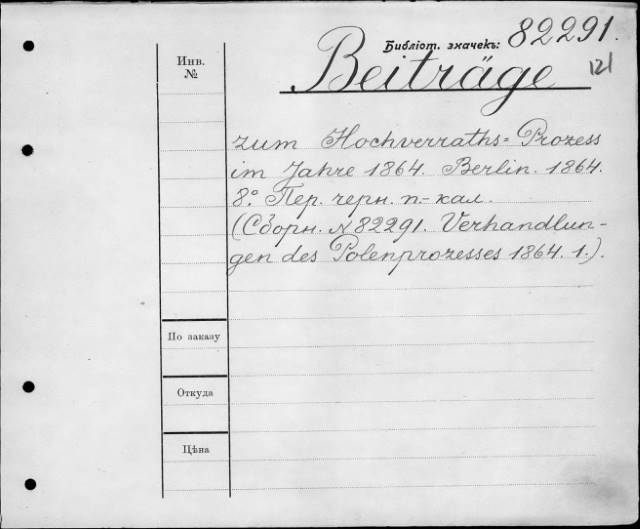 Библіот. значекъ: 82291.
121
Инв.
№
Beiträge
zum Hochverraths-Prozess
im Jahre 1864. Berlin. 1864.
8° Пер. черн. п-кал.
(Сборн. № 82291. Verhandlun-
gen des Polenprozesses 1864. 1.).
По заказу
Откуда
Цѣна